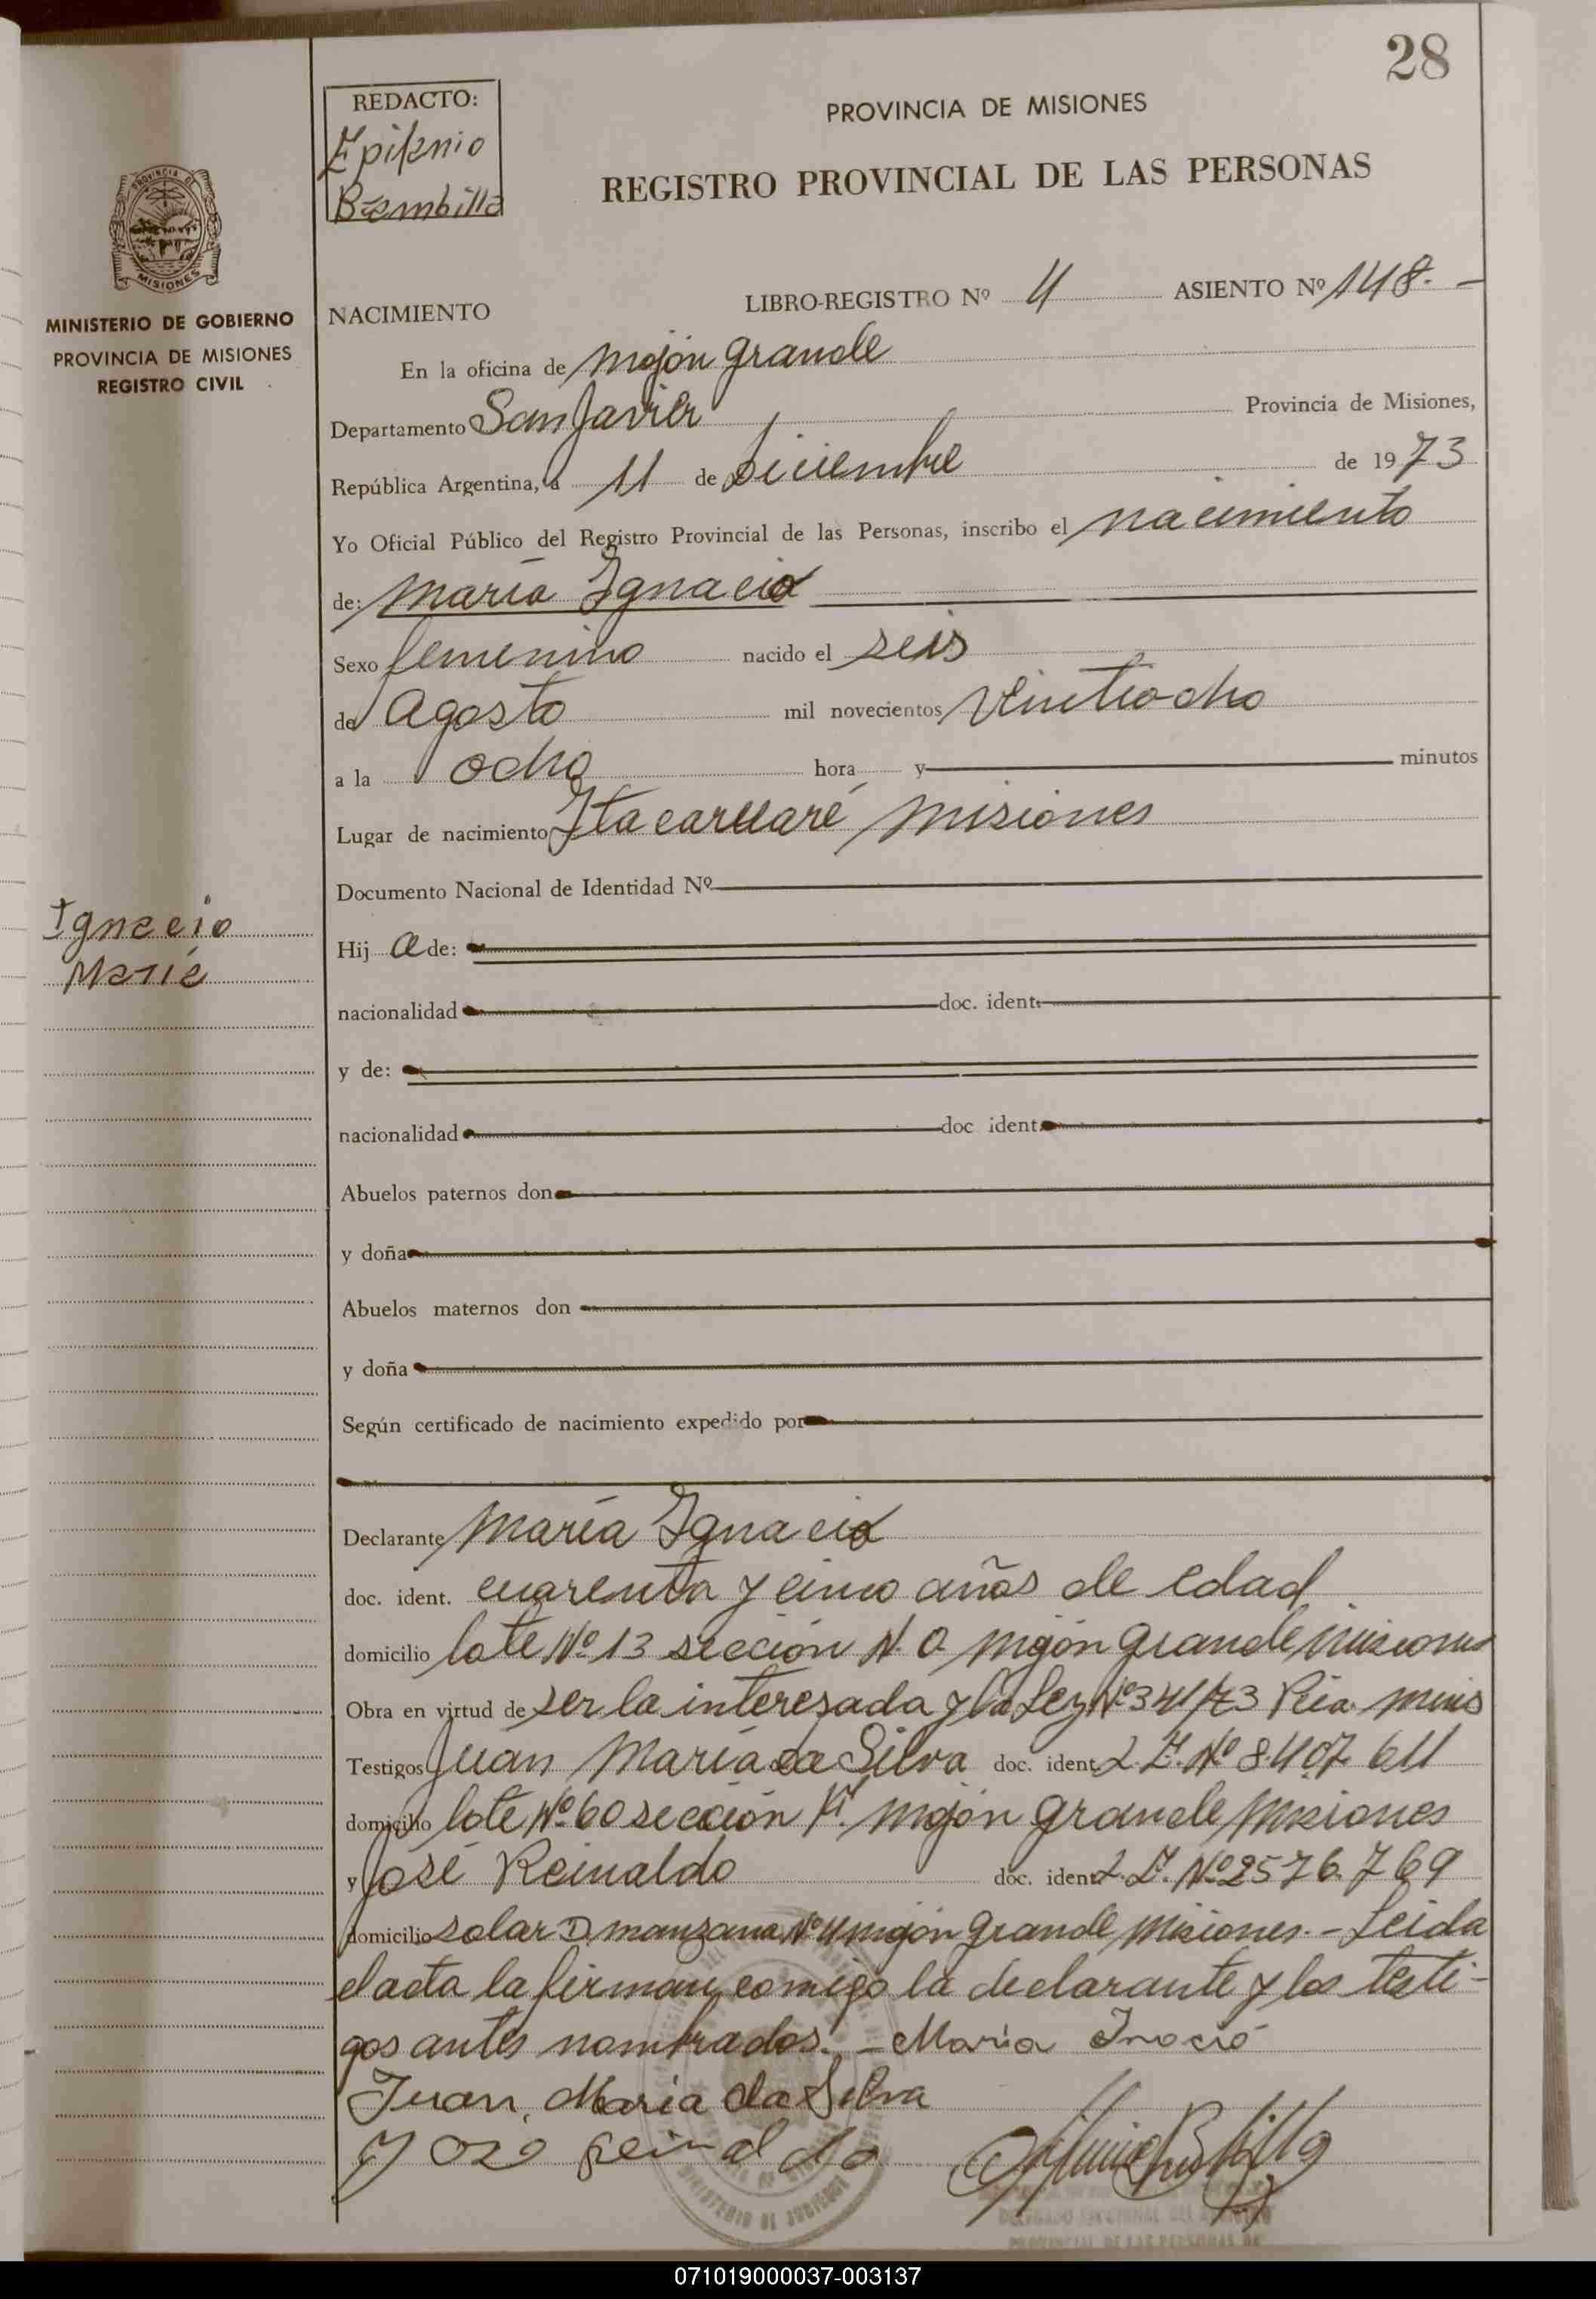 28
REDACTO:
Epifanio
Bambilla
PROVINCIA DE MISIONES
REGISTRO PROVINCIAL DE LAS PERSONAS
PROVINCIA DE
MISIONES
MINISTERIO DE GOBIERNO
PROVINCIA DE MISIONES
REGISTRO CIVIL
NACIMIENTO LIBRO-REGISTRO Nº 4 ASIENTO Nº 148.-
En la oficina de Mojón Grande
Departamento San Javier Provincia de Misiones,
República Argentina, a 11 de Diciembre de 1973
Yo Oficial Público del Registro Provincial de las Personas, inscribo el nacimiento
de: María Ignacio
Sexo femenino nacido el seis
de Agosto mil novecientos Vintiocho
a la ocho hora y minutos
Lugar de nacimiento Itacaruaré Misiones
Documento Nacional de Identidad Nº
Ignacio
María
Hij a de:
nacionalidad doc. ident.
y de:
nacionalidad doc ident.
Abuelos paternos don
y doña
Abuelos maternos don
y doña
Según certificado de nacimiento expedido por
Declarante María Ignacio
doc. ident. cuarenta y cinco años de edad
domicilio lote Nº 13 sección N. O Mojón Grande Misiones
Obra en virtud de ser la interesada y la Ley Nº 341/73 Pcia. Mnes
Testigos Juan María da Silva doc. ident. L.E. Nº 8.407 611
domicilio lote Nº 60 sección 1ª. Mojón Grande Misiones
y José Reinaldo doc. ident. L.E. Nº 2576.769
domicilio solar D. manzana Nº 4 Mojón Grande Misiones.- Leida
el acta la firman comigo la declarante y los testi-
gos antes nombrados.- María Inacio
Juan María da Silva
Jose Reinaldo
MINISTERIO DE GOBIERNO
PROVINCIAL DE LAS PERSONAS DE
071019000037-003137